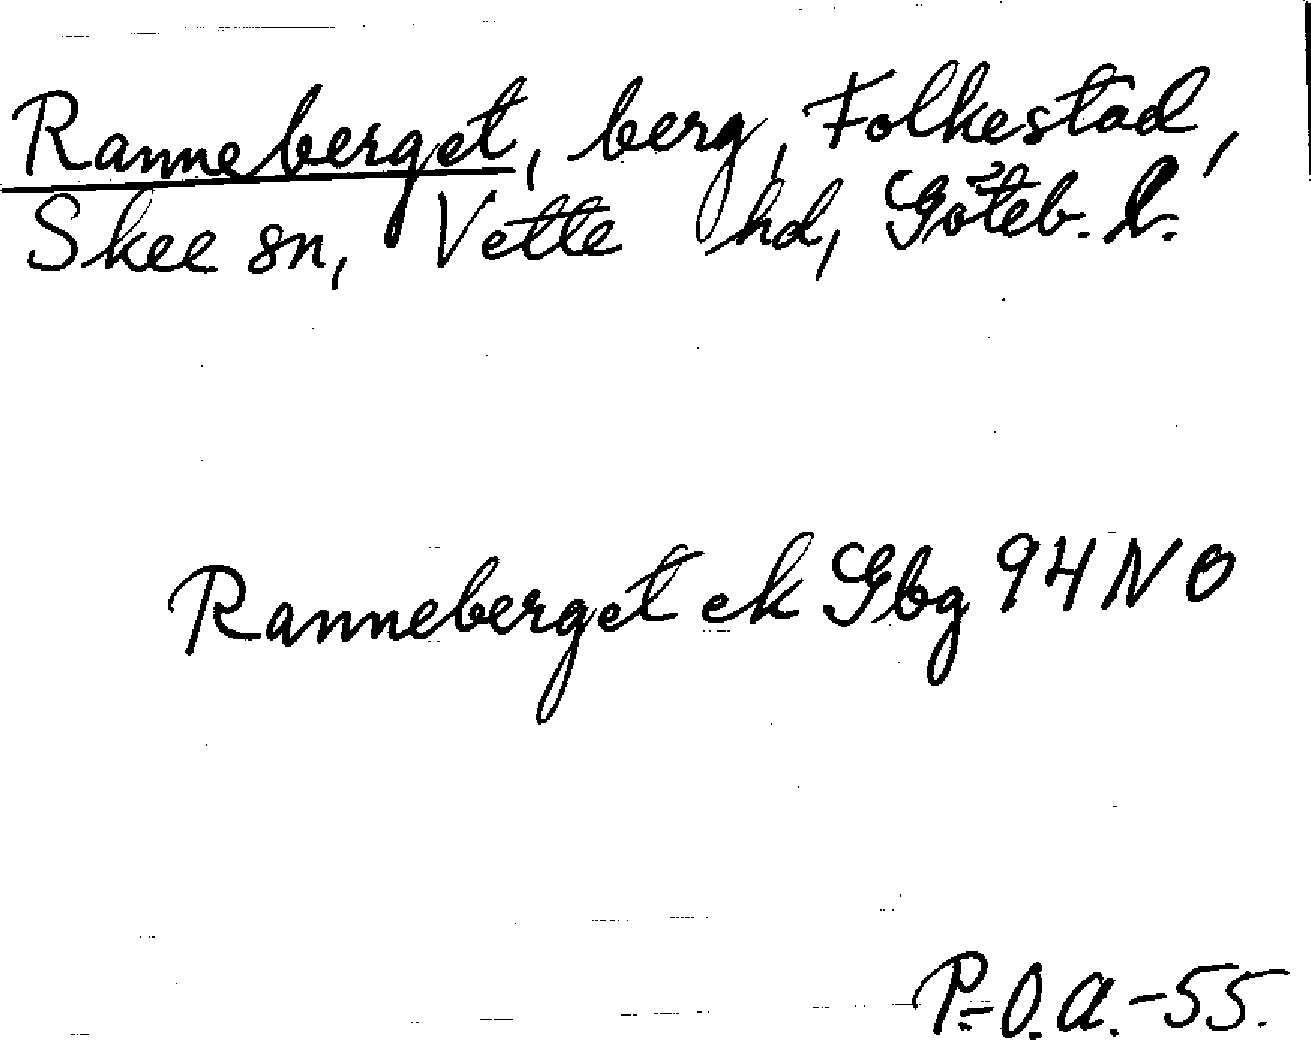 Ranneberget, berg, Folkestad,
Skee sn, Vette hd, Göteb. l.
Ranneberget ek Gbg 94 NO
P.-O. A. -55.